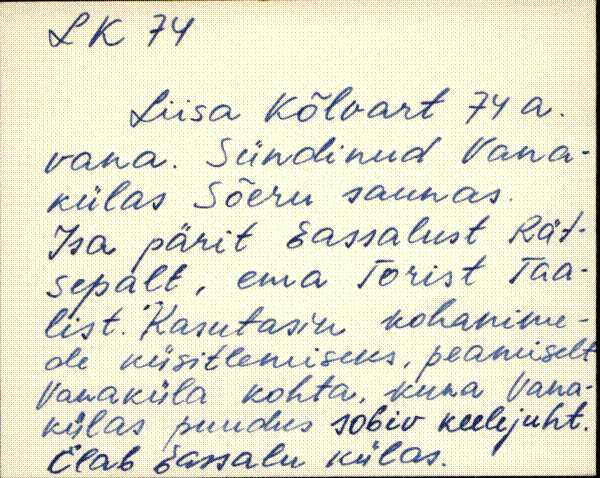 LK 74
Liisa Kõlvart 74 a.
vana. Sündinud Vana-
külas Sõeru saunas.
Isa pärit Sassalust Rät-
sepalt, ema Torist Taa-
list. Kasutasin kohanime-
de küsitlemiseks, peamiselt
Vanaküla kohta, kuna Vana-
külas puudus sobiv keelejuht.
Elab Sassalu külas.